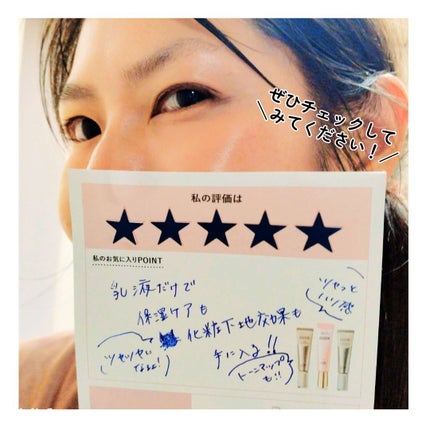 ぜひチェックして
みてください！
私の評価は
★★★★★
私のお気に入りPOINT
乳液だけで
保湿ケアも
化粧下地効果も
手に入る!!
ツヤっと
ハリ感
ツヤツヤに
なるよ!
トーンアップ
も!!